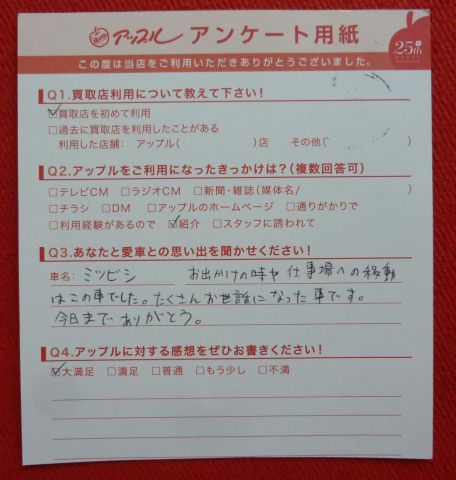 アップル アンケート用紙
25th
この度は当店をご利用いただきありがとうございました。
Q1.買取店利用について教えて下さい!
☑買取店を初めて利用
□過去に買取店を利用したことがある
利用した店舗: アップル( )店 その他( )
Q2.アップルをご利用になったきっかけは?(複数回答可)
□テレビCM □ラジオCM □新聞・雑誌(媒体名/ )
□チラシ □DM □アップルのホームページ □通りがかりで
□利用経験があるので ☑紹介 □スタッフに誘われて
Q3.あなたと愛車との思い出を聞かせください!
車名: ミツビシ お出かけの時や仕事場への移動
はこの車でした。たくさんお世話になった車です。
今日までありがとう。
Q4.アップルに対する感想をぜひお書きください!
☑大満足 □満足 □普通 □もう少し □不満